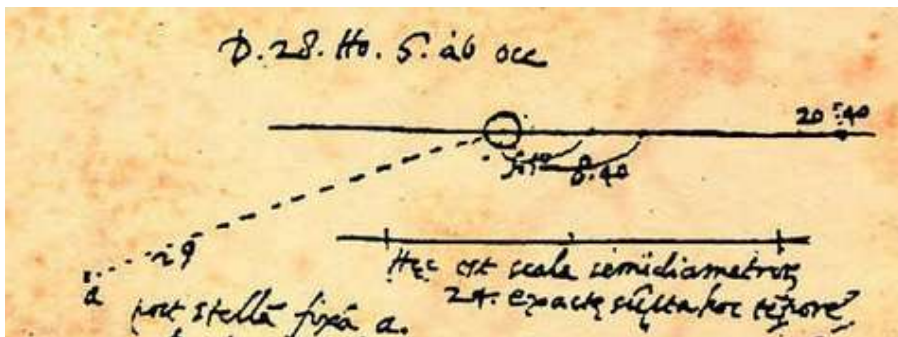 D. 28. Ho. 6. ab occ
20.40
8.40
29
a
Hęc est scala semidiametror
24. exactę hoc tẽporẽ
post stellã fixã a.